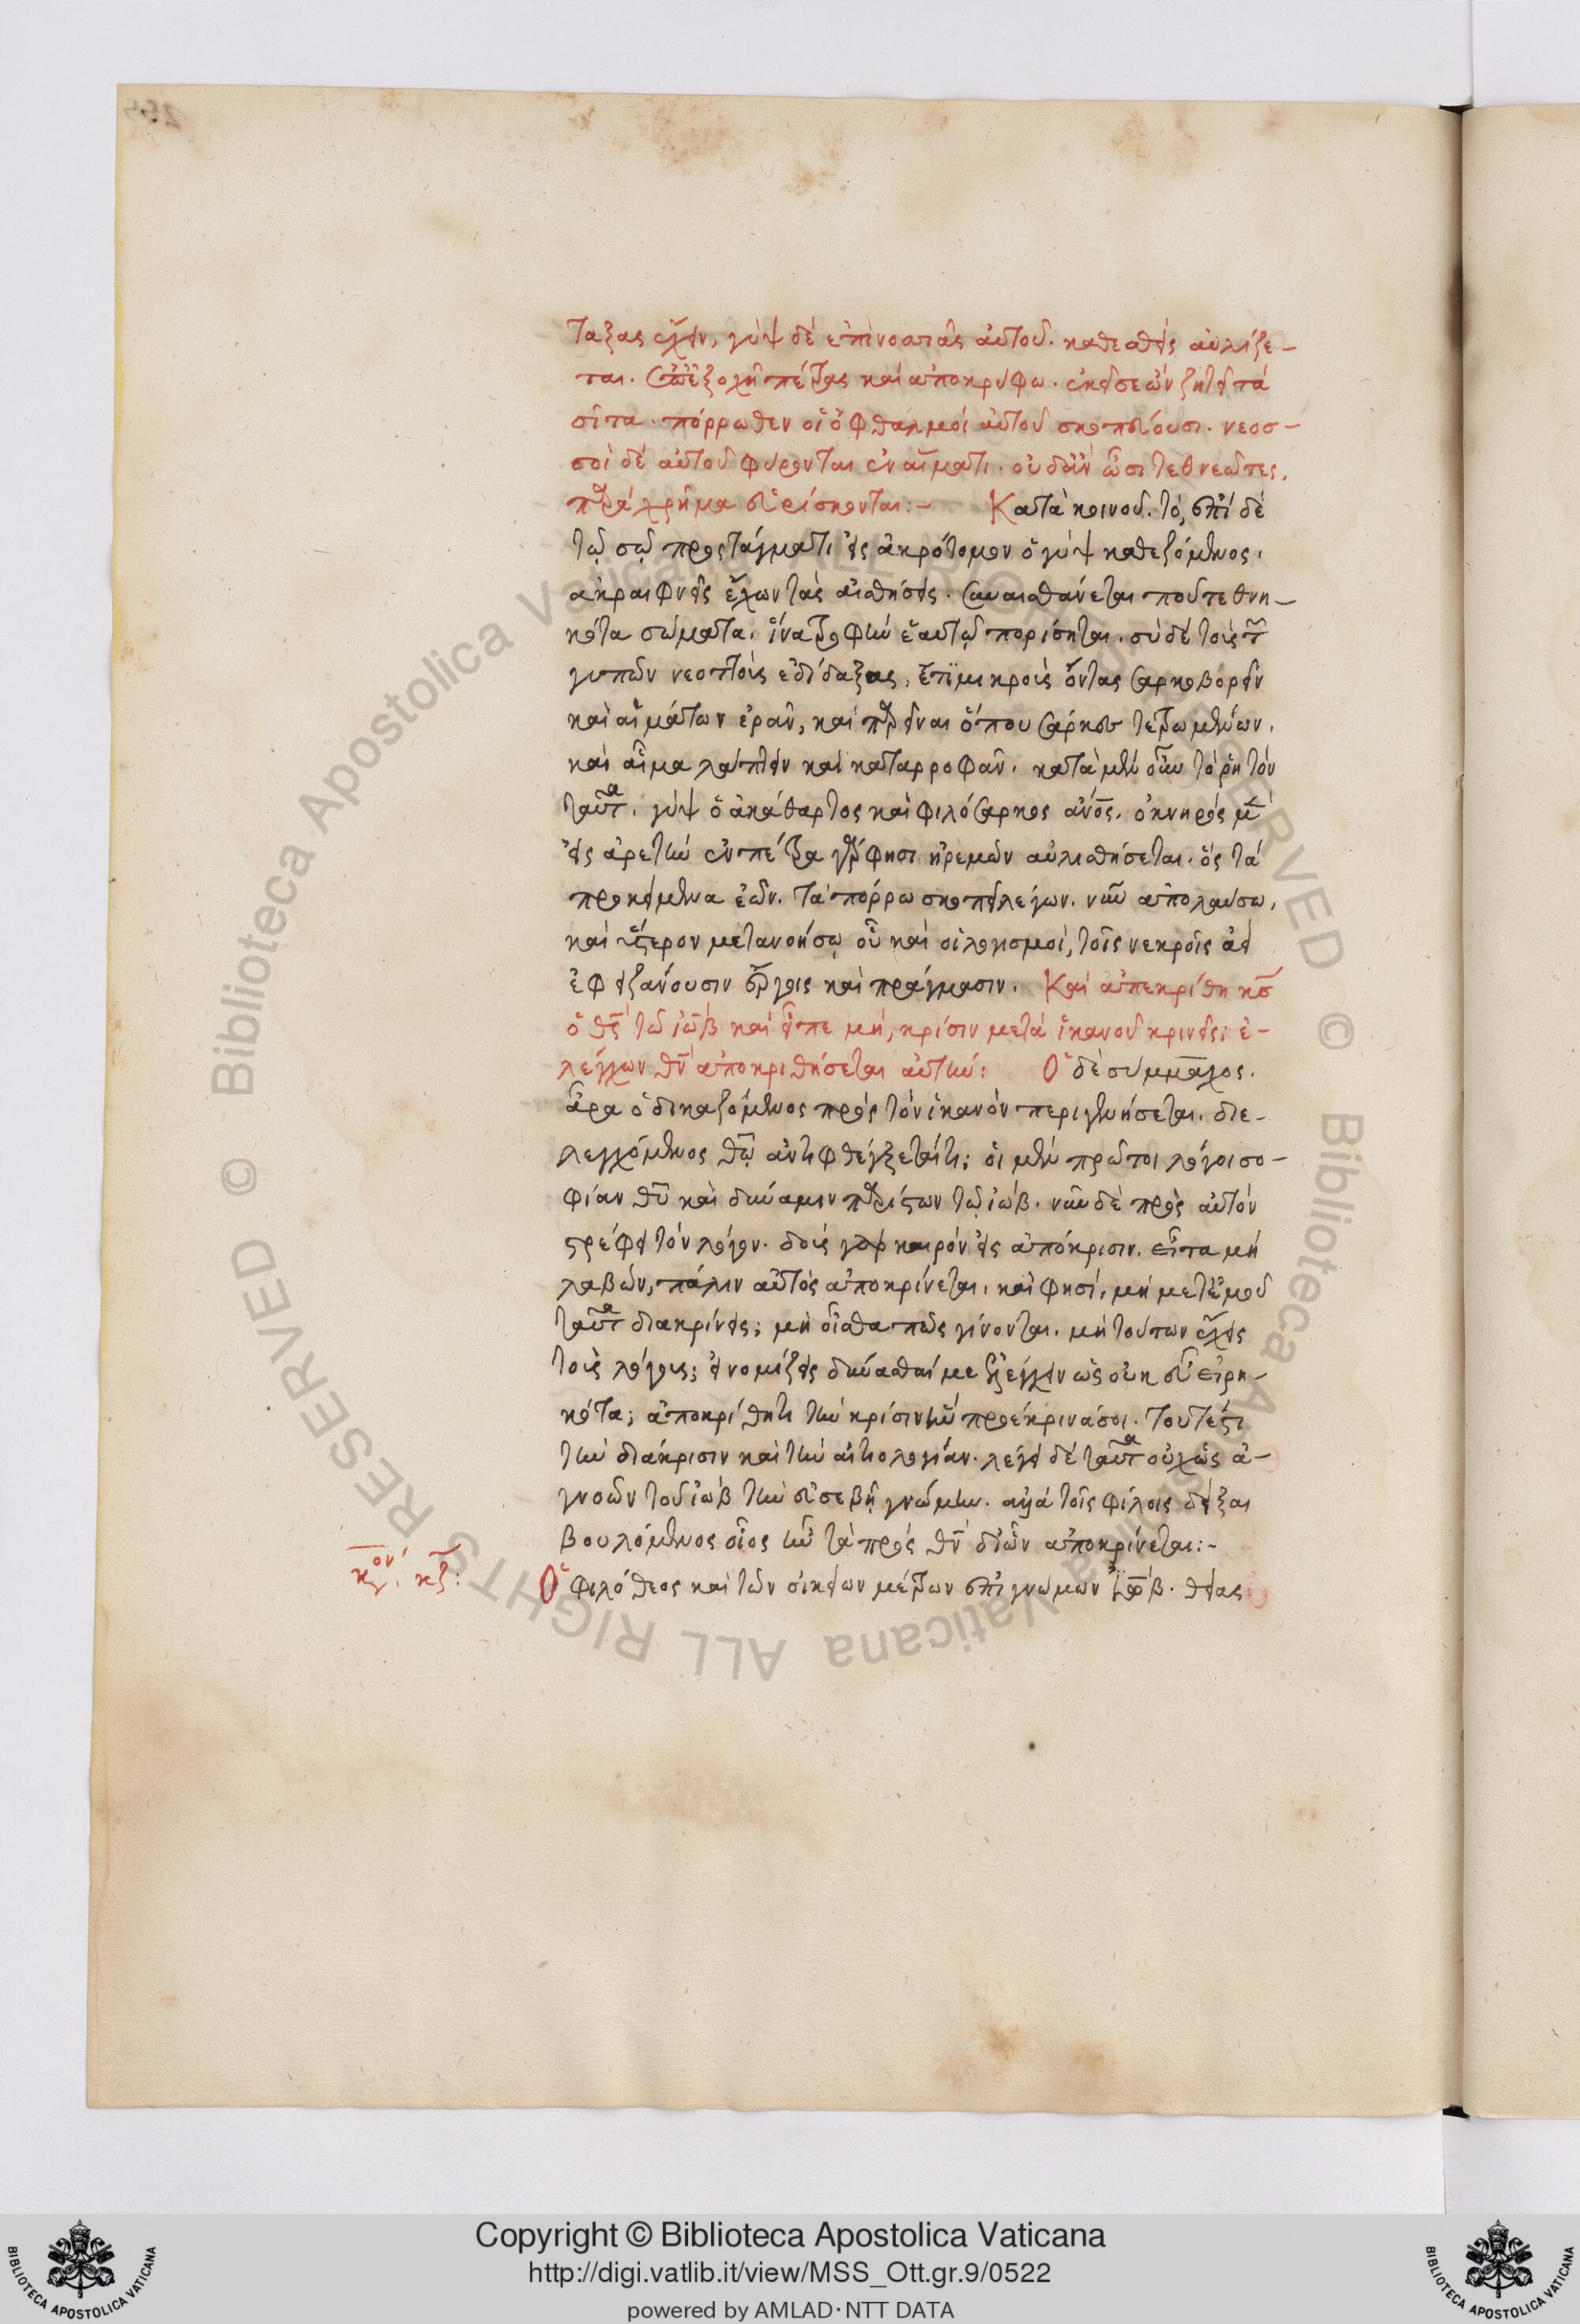 τάξας ἔχειν, γὺψ δὲ ἐπὶ νοσσιᾶς αὐτοῦ. καθεσθεὶς αὐλίζε-
ται. ἐπ' ἐξοχῇ πέτρας καὶ ἀποκρύφω. ἐκεῖσε ὢν ζητεῖ τὰ
σῖτα. πόρρωθεν οἱ ὀφθαλμοὶ αὐτοῦ σκοπεύουσι. νεοσ-
σοὶ δὲ αὐτοῦ φύρονται ἐν αἵματι. οὗ δ' ἂν ὦσι τεθνεῶτες,
παραχρῆμα εὑρίσκονται:- Κατὰ κοινοῦ. τὸ, ἐπὶ δὲ
τῷ σῷ προστάγματι εἰς ἀκρότομον ὁ γὺψ καθεζόμενος,
ἀκραιφνεῖς ἔχων τὰς αἰσθήσεις. συναισθάνεται που τεθνη-
κότα σώματα. ἵνα τροφὴν ἑαυτῷ πορίσηται. σὺ δὲ τοὺς τῶν
γυπῶν νεοττοὺς ἐδίδαξας, ἔτι μικροὺς ὄντας σαρκοβορεῖν
καὶ αἱμάτων ἐρᾶν, καὶ παρεῖναι ὅπου σάρκες τετρωμένων.
καὶ αἷμα λάπτειν καὶ καταρροφᾶν. κατὰ μὲν οὖν τὸ ῥητὸν
ταῦτα. γὺψ ὁ ἀκάθαρτος καὶ φιλόσαρκος ἄνος. ὀκνηρὸς μὲν
εἰς ἀρετὴν ἐν πέτρα γραφησι ἠρεμῶν αὐλισθήσεται. ὃς τὰ
προκείμενα ἐῶν. τὰ πόρρω σκοπεῖ λέγων. νῦν ἀπολαύσω,
καὶ ὕστερον μετανοήσω οὗ καὶ οἱ λογισμοὶ, τοῖς νεκροῖς ἀεὶ
ἐφιζάνουσιν ἔργοις καὶ πράγμασιν. Καὶ ἀπεκρίθη κς
ὁ θς τῶ ἰὼβ καὶ εἶπε μὴ, κρίσιν μετὰ ἱκανοῦ κρινεῖς; ἐ-
λέγχων θν ἀποκριθήσεται αὐτήν: Ὁ δὲ σύμμαχος.
ἆρα ὁ δικαζόμενος πρὸς τὸν ἱκανὸν περιγενήσεται. διε-
λεγχόμενος θῶ ἀντιφθέγξεταί τι; οἱ μὲν πρῶτοι λόγοι σο-
φίαν θυ καὶ δύναμιν παρίστων τῷ ἰώβ. νῦν δὲ πρὸς αὐτὸν
στρέφει τὸν λόγον. δοὺς γὰρ καιρὸν εἰς ἀπόκρισιν. εἶτα μὴ
λαβών, πάλιν αὐτὸς ἀποκρίνεται. καὶ φησί, μὴ μετ' ἐμοῦ
ταῦτα διακρίνεις; μὴ οἶσθα πῶς γίνονται. μὴ τούτων ἔχεις
τοὺς λόγους; εἰ νομίζεις δύνασθαί με ἐξελέγχειν ὡς οὐκ εὖ εἰρη-
κότα; ἀποκρίθητι τὴν κρίσιν ἣν προέκρινά σοι. τουτέστι
τὴν διάκρισιν καὶ τὴν αἰτιολογίαν. λέγει δὲ ταῦτα οὐχ ὡς ἀ-
γνοῶν τοῦ ἰὼβ τὴν εὐσεβῆ γνώμην. ἀλλὰ τοῖς φίλοις δεῖξαι
βουλόμενος οἷος ἦν τὰ πρὸς θν δι' ὧν ἀποκρίνεται:-
κλον. κζ: Ὁ φιλόθεος καὶ τῶν οἰκείων μέτρων ἐπιγνώμων ἰώβ. θείας